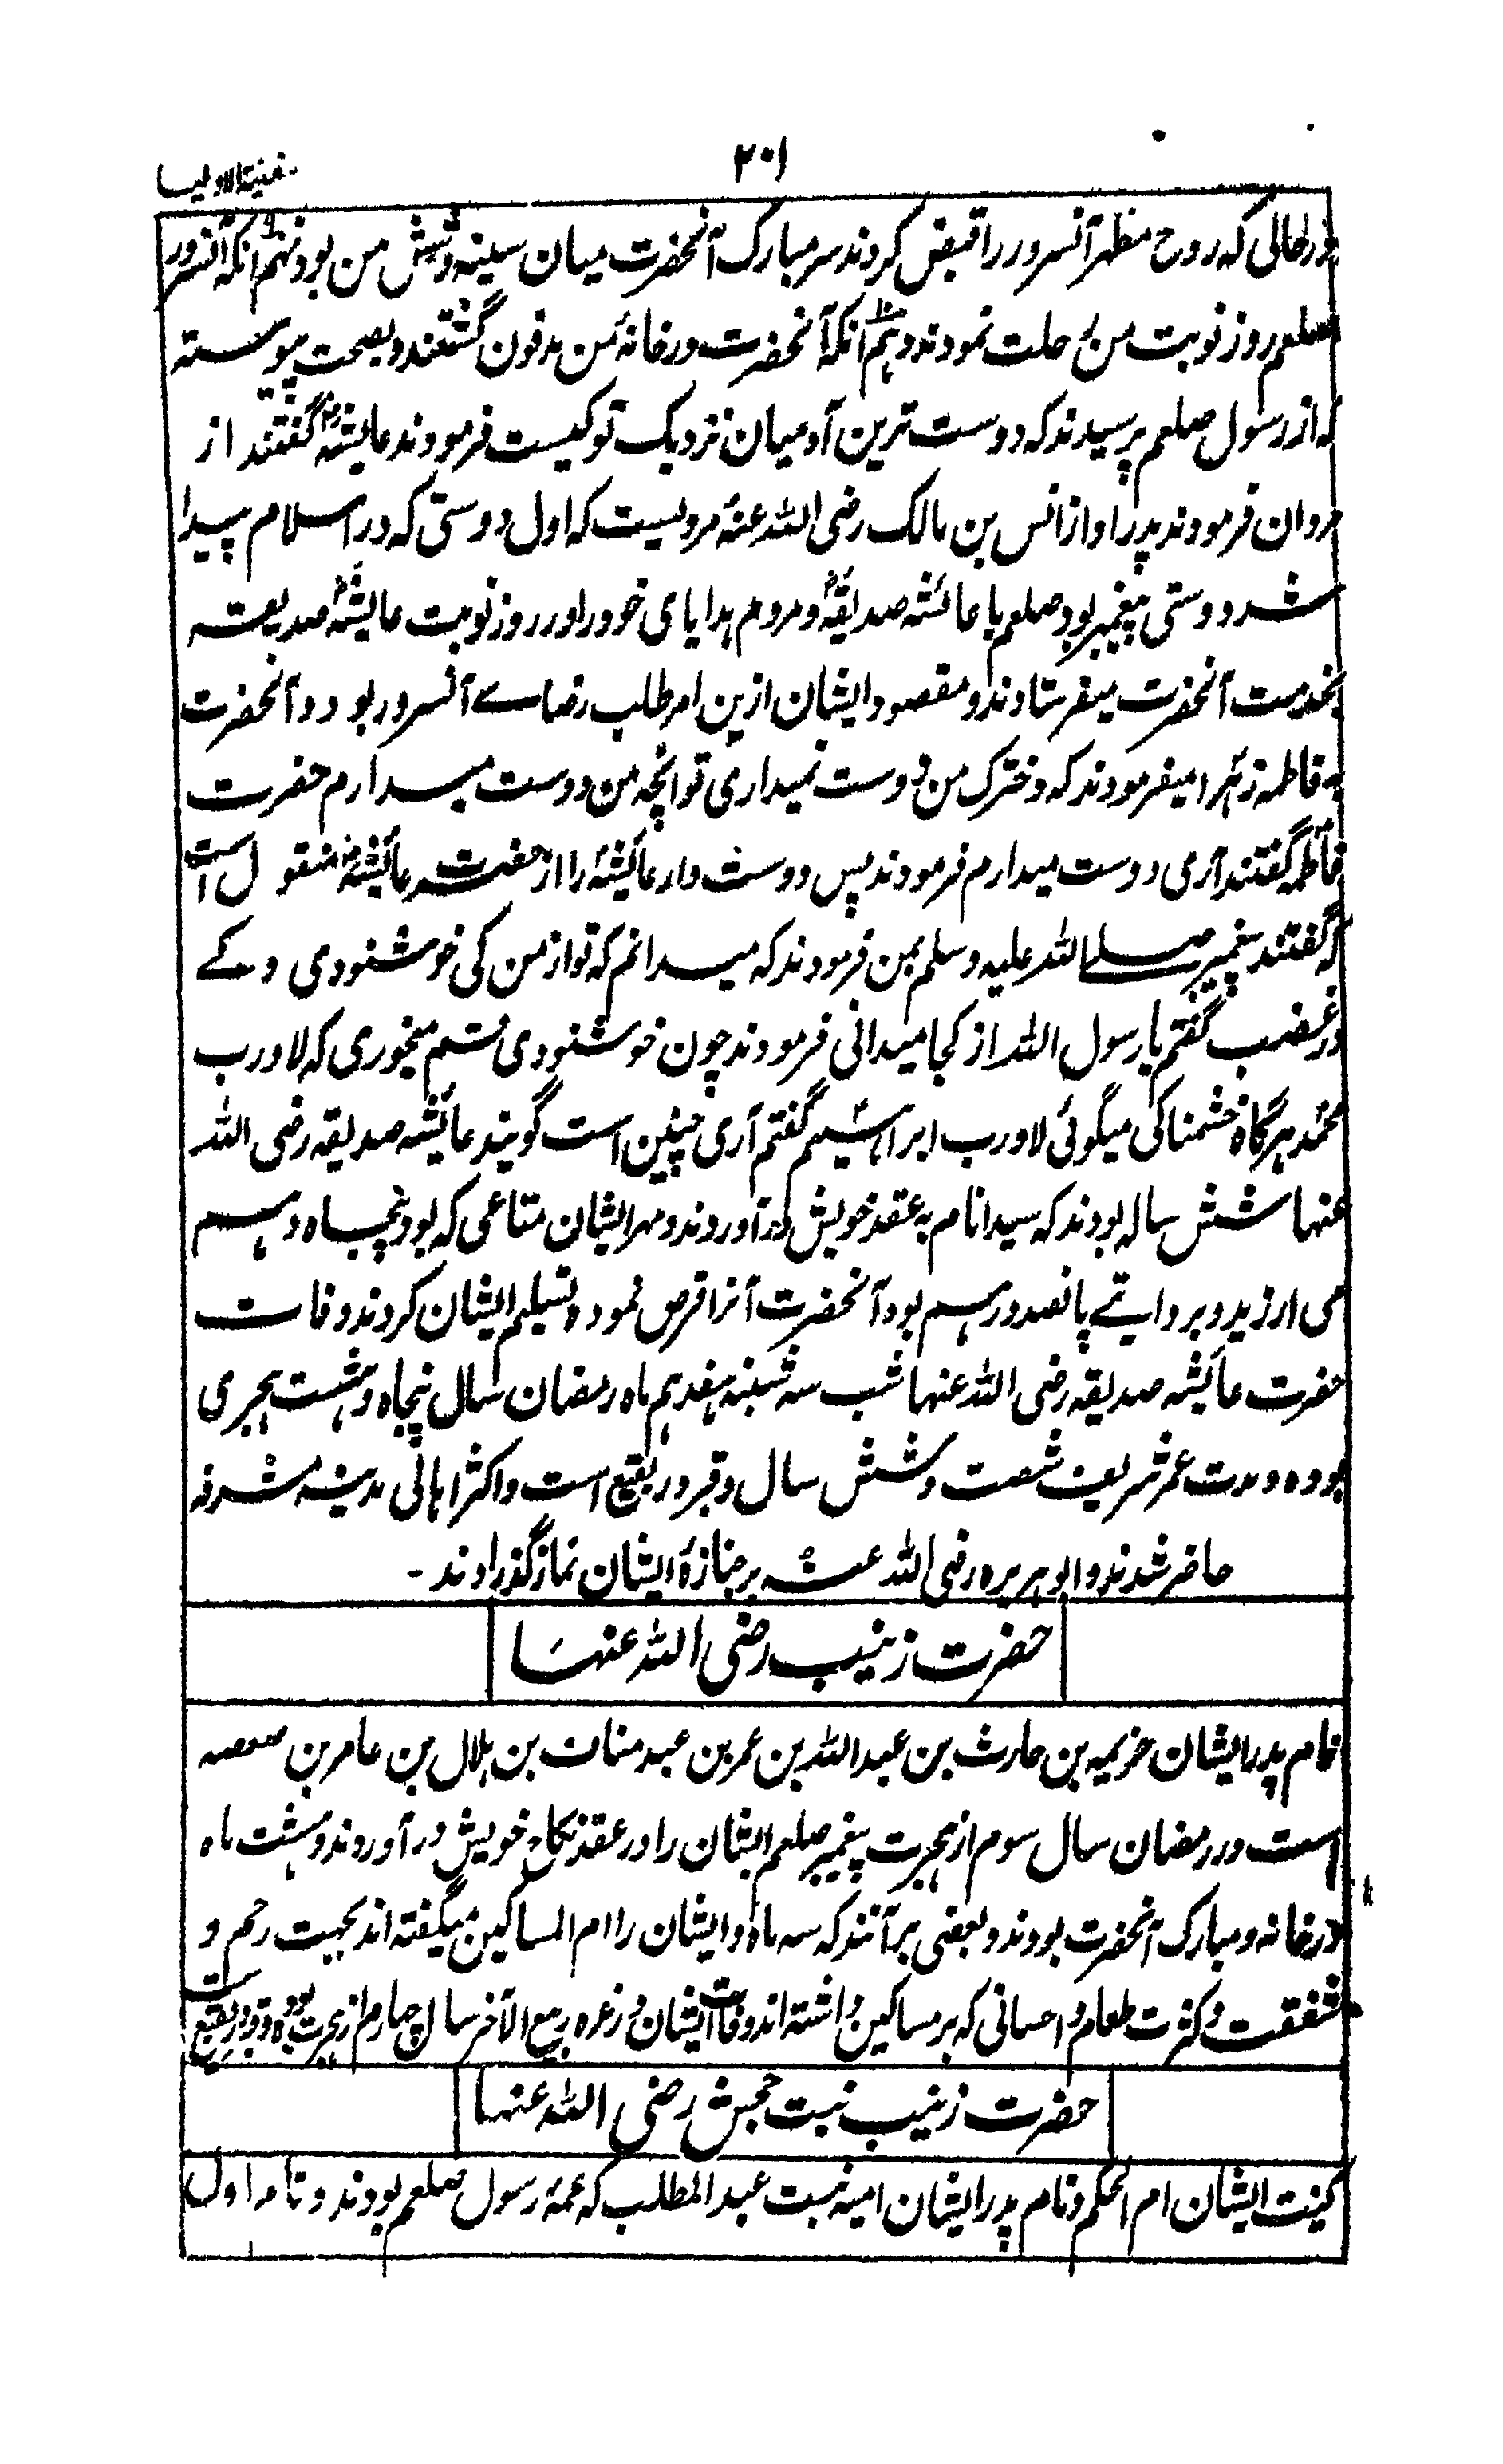 ۲۰۱
سفینة الاولیا
درحالی که روح مطهر آنسرور را قبض کردند سر مبارک آنحضرت میان سینه و شش من بود نهم آنکه آنسرور
صلعم روز نوبت من رحلت نمودند دهم آنکه آنحضرت در خانهٔ من مدفون گشتند و بصحت پیوسته
که از رسول صلعم پرسیدند که دوست ترین آدمیان نزدیک تو کیست فرمودند عایشه گفتند از
مردان فرمودند پدر او از انس بن مالک رضی الله عنه مرویست که اول دوستی که در اسلام پیدا
شد دوستی پیغمبر بود صلعم با عائشه صدیقه و مردم هدایای خود را در روز نوبت عایشه صدیقه
بخدمت آنحضرت میفرستادند و مقصود ایشان ازین امر طلب رضاے آنسرور بود و آنحضرت
به فاطمه زهرا میفرمودند که دخترک من دوست نمیداری تو انچه من دوست میدارم حضرت
فاطمه گفتند آری دوست میدارم فرمودند پس دوست دار عائشه را از حضرت عائشه منقول است
که گفتند پیغمبر صلے الله علیه وسلم بمن فرمودند که میدانم که تو از من کی خوشنودی و کے
در غضب گفتم یا رسول الله از کجا میدانی فرمودند چون خوشنودی قسم میخوری که لا ورب
محمد و هرگاه خشمناکی میگوئی لا ورب ابراهیم گفتم آری چنین است گویند عائشه صدیقه رضی الله
عنها شش ساله بودند که سید انام به عقد خویش درآوردند و مهر ایشان متاعی که بود پنجاه درهم
می ارزید و بروایتے پانصد درهم بود آنحضرت آنرا قرض نموده تسلیم ایشان کردند وفات
حضرت عائشه صدیقه رضی الله عنها شب سه شنبه هفدهم ماه رمضان سال پنجاه و هشت هجری
بوده و مدت عمر شریف شصت و شش سال و قبر در بقیع است و اکثر اهالی مدینه مشرفه
حاضر شدند و ابوهریره رضی الله عنه بر جنازهٔ ایشان نماز گذراوند -
حضرت زینب رضی الله عنها
نام پدر ایشان خزیمه بن حارث بن عبدالله بن عمر بن عبد مناف بن هلال بن عامر بن صعصه
است در رمضان سال سوم از هجرت پیغمبر صلعم ایشان را در عقد نکاح خویش درآوردند و هشت ماه
در خانه و مبارک آنحضرت بودند و بعضی برآنند که سه ماه و ایشان را ام المساکین میگفته اند بجهت رحم و
شفقت و کثرت طعام و احسانی که بر مساکین داشته اند وفات ایشان در غره ربیع الآخر سال چهارم از هجرت بوده و قبر در بقیع است
حضرت زینب بنت جحش رضی الله عنها
کنیت ایشان ام الحکم و نام پدر ایشان امیه بنت عبدالمطلب که عمهٔ رسول صلعم بودند و نام اول